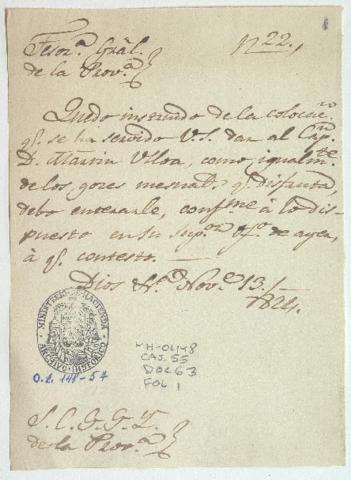 Tesor.ª Gràl.
de la Prov.ª
N. 22.
Quedo instruido de la colocac.on
q.e se ha servido V.S. dar al Cap.n
D. Martin Ulloa, como igualm.te
de los goces mensual.s q.e disfruta,
debo enterarle, conf.me à lo dis-
puesto en su sup.or of.o de ayer,
à q.e contesto.
Dios &.ª Nov.e 13/
1824.
MINISTERIO DE HACIENDA
ARCHIVO
O.L. 148-54
MH-OL148
CAJ. 55
DOC 63
FOL 1
S. C. G. G. Y.
de la Prov.ª